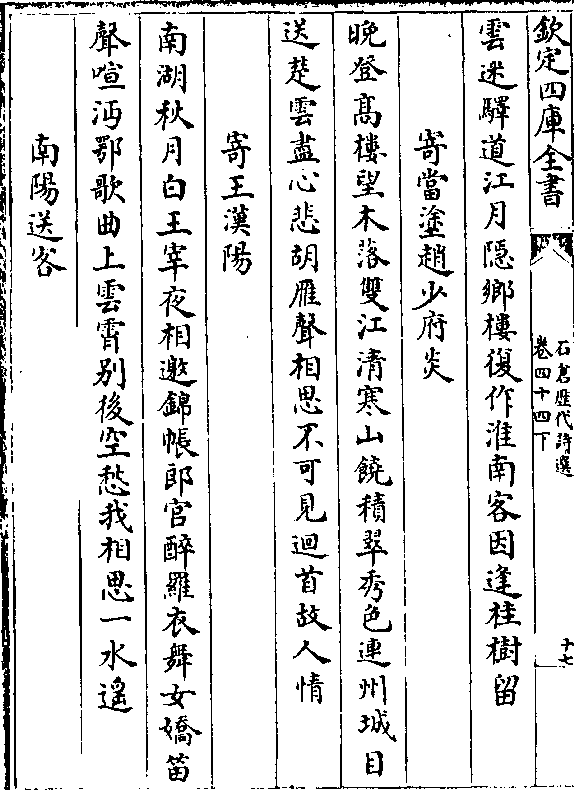 欽定四庫全書
石倉歷代詩選
卷四十四下
十七
雲迷驛道江月隱鄉樓復作淮南客因逢桂樹留
寄當塗趙少府炎
晚登髙樓望木落雙江清寒山饒積翠秀色連州城目
送楚雲盡心悲胡雁聲相思不可見迴首故人情
寄王漢陽
南湖秋月白王宰夜相邀錦帳郎官醉羅衣舞女嬌笛
聲喧沔鄂歌曲上雲霄别後空愁我相思一水遙
南陽送客